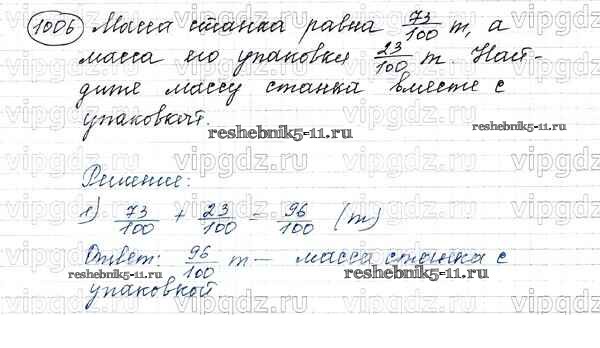 1006 Масса станка равна 73/100 т, а
масса его упаковки 23/100 т. Най-
дите массу станка вместе с
упаковкой.
reshebnik5-11.ru
reshebnik5-11.ru
Решение:
1) 73/100 + 23/100 = 96/100 (т)
Ответ: 96/100 т — масса станка с
упаковкой
reshebnik5-11.ru
reshebnik5-11.ru
vipgdz.ru vipgdz.ru vipgdz.ru vipgdz.ru